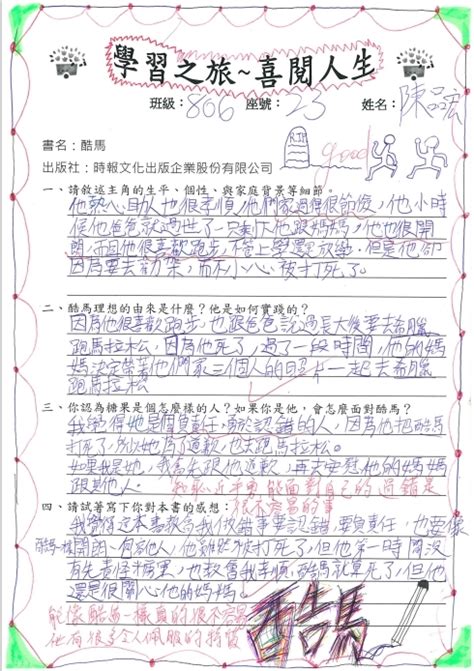 學習之旅~喜閱人生
班級：806 座號：23 姓名：陳品宏
書名：酷馬
出版社：時報文化出版企業股份有限公司
good
一、請敘述主角的生平、個性、與家庭背景等細節。
他熱心助人也很孝順，他們家過得很節儉，他小時
候他爸爸就過世了，只剩下他跟媽媽，他也很開
朗，而且他很喜歡跑步，不管上學還是放學，但是他卻
因為要去勸架，而不小心被打死了。
二、酷馬理想的由來是什麼？他是如何實踐的？
因為他很喜歡跑步，也跟爸爸說過長大後要去希臘
跑馬拉松，因為他死了，過了一段時間，他的媽
媽決定帶著他們家三個人的照片一起去希臘
跑馬拉松
三、你認為糖果是個怎麼樣的人？如果你是他，會怎麼面對酷馬？
我覺得她是個負責任，勇於認錯的人，因為他把酷馬
打死了，所以她為了道歉，也去跑馬拉松。
如果我是她，我會先跟他道歉，再去安慰他的媽媽
跟其他人。
能面對自己的過錯是
很不容易的事
四、請試著寫下你對本書的感想：
我覺得這本書教會我做錯事要認錯，要負責任，也要像
酷馬一樣開朗、有為他人，他雖然被打死了，但他第一時間沒
有先責怪糖果，也教會我孝順，酷馬就算死了，但他
還是很關心他的媽媽。
能像酷馬一樣真的很不容易
他有很多令人佩服的特質
酷馬